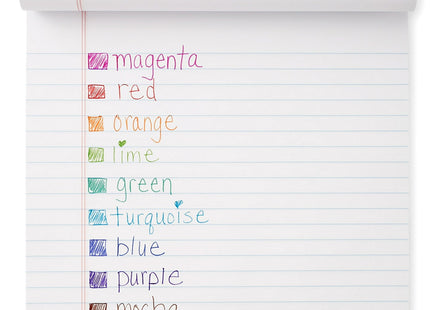 magenta
red
orange
lime
green
turquoise
blue
purple
mocha